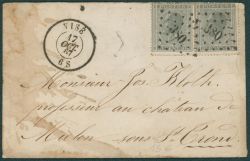 VISÉ
17
OCT
6 S
380
380
Monsieur Jos Bloth
professeur au château de
Mielen sous St Trond